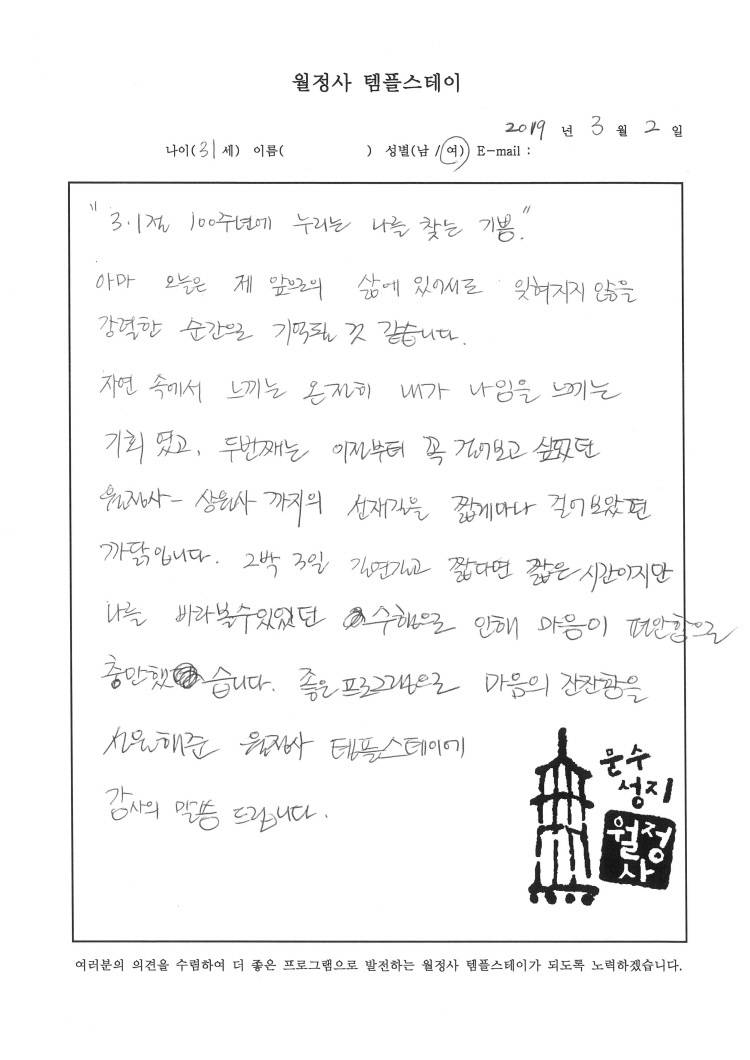 월정사 템플스테이
2019 년 3 월 2 일
나이(31세) 이름( ) 성별(남 /여) E-mail :
"3·1절 100주년에 누리는 나를 찾는 기쁨."
아마 오늘은 제 앞으로의 삶에 있어서도 잊혀지지 않을
강렬한 순간으로 기억될 것 같습니다.
자연 속에서 느끼는 온전히 내가 나임을 느끼는
기회였고, 두번째는 이전부터 꼭 걸어보고 싶었던
월정사 - 상원사 까지의 선재길을 짧게마나 걸어보았던
까닭입니다. 2박 3일 길면길고 짧다면 짧은 시간이지만
나를 바라볼수있었던 수행으로 인해 마음이 편안함으로
충만했습니다. 좋은 프로그램으로 마음의 잔잔함을
선물해준 월정사 템플스테이에
감사의 말씀 드립니다.
문수
성지
월정
사
여러분의 의견을 수렴하여 더 좋은 프로그램으로 발전하는 월정사 템플스테이가 되도록 노력하겠습니다.